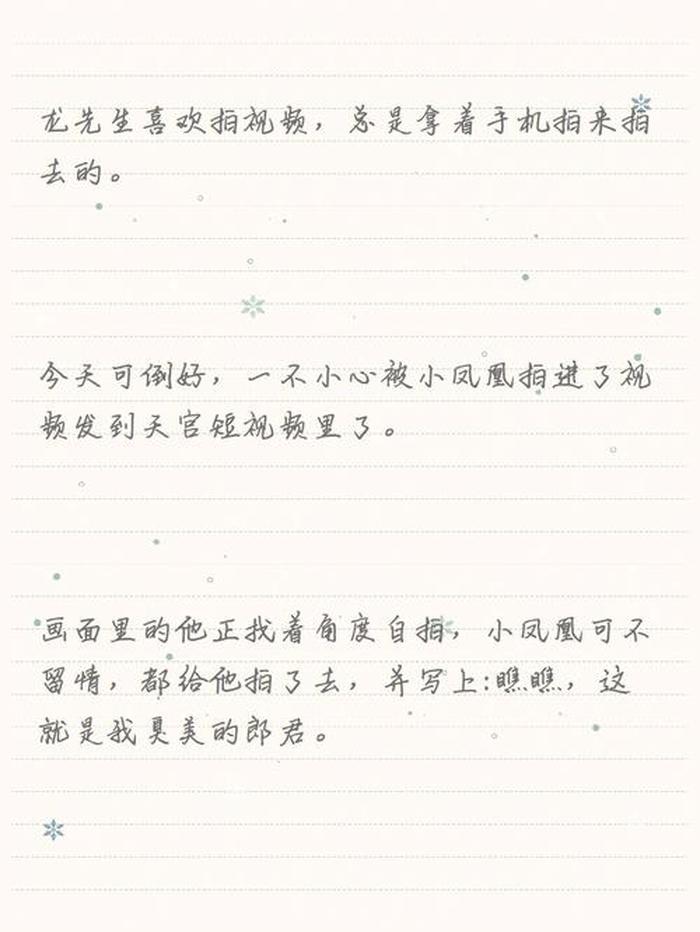 龙先生喜欢拍视频，总是拿着手机拍来拍
去的。
今天可倒好，一不小心被小凤凰拍进了视
频发到天宫短视频里了。
画面里的他正找着角度自拍，小凤凰可不
留情，都给他拍了去，并写上:瞧瞧，这
就是我臭美的郎君。